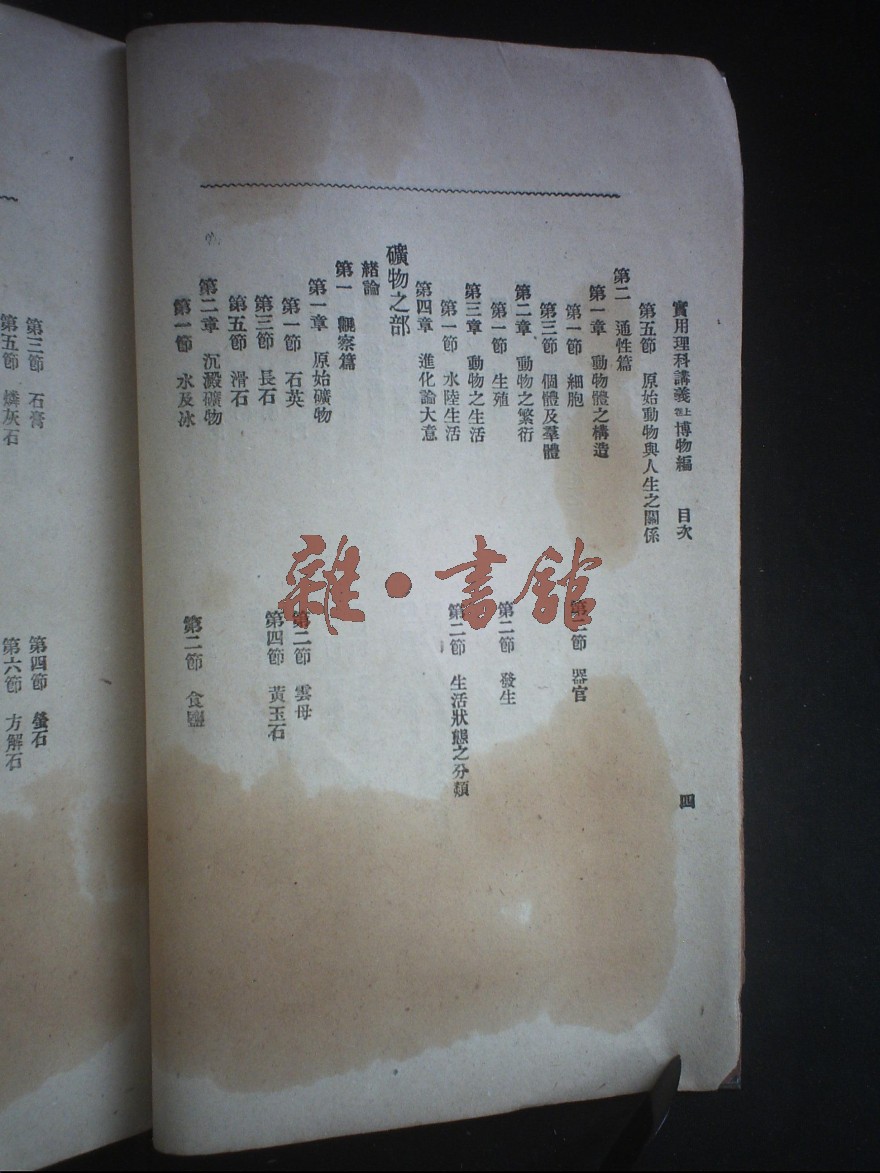 實用理科講義 卷上 博物編 目次 四
第五節 原始動物與人生之關係
第二 通性篇
第一章 動物體之構造
第一節 細胞 第二節 器官
第三節 個體及羣體
第二章 動物之繁衍
第一節 生殖 第二節 發生
第三章 動物之生活
第一節 水陸生活 第二節 生活狀態之分類
第四章 進化論大意
礦物之部
緒論
第一 觀察篇
第一章 原始礦物
第一節 石英 第二節 雲母
第三節 長石 第四節 黃玉石
第五節 滑石
第二章 沉澱礦物
第一節 水及冰 第二節 食鹽
第三節 石膏 第四節 螢石
第五節 燐灰石 第六節 方解石
雜·書舘